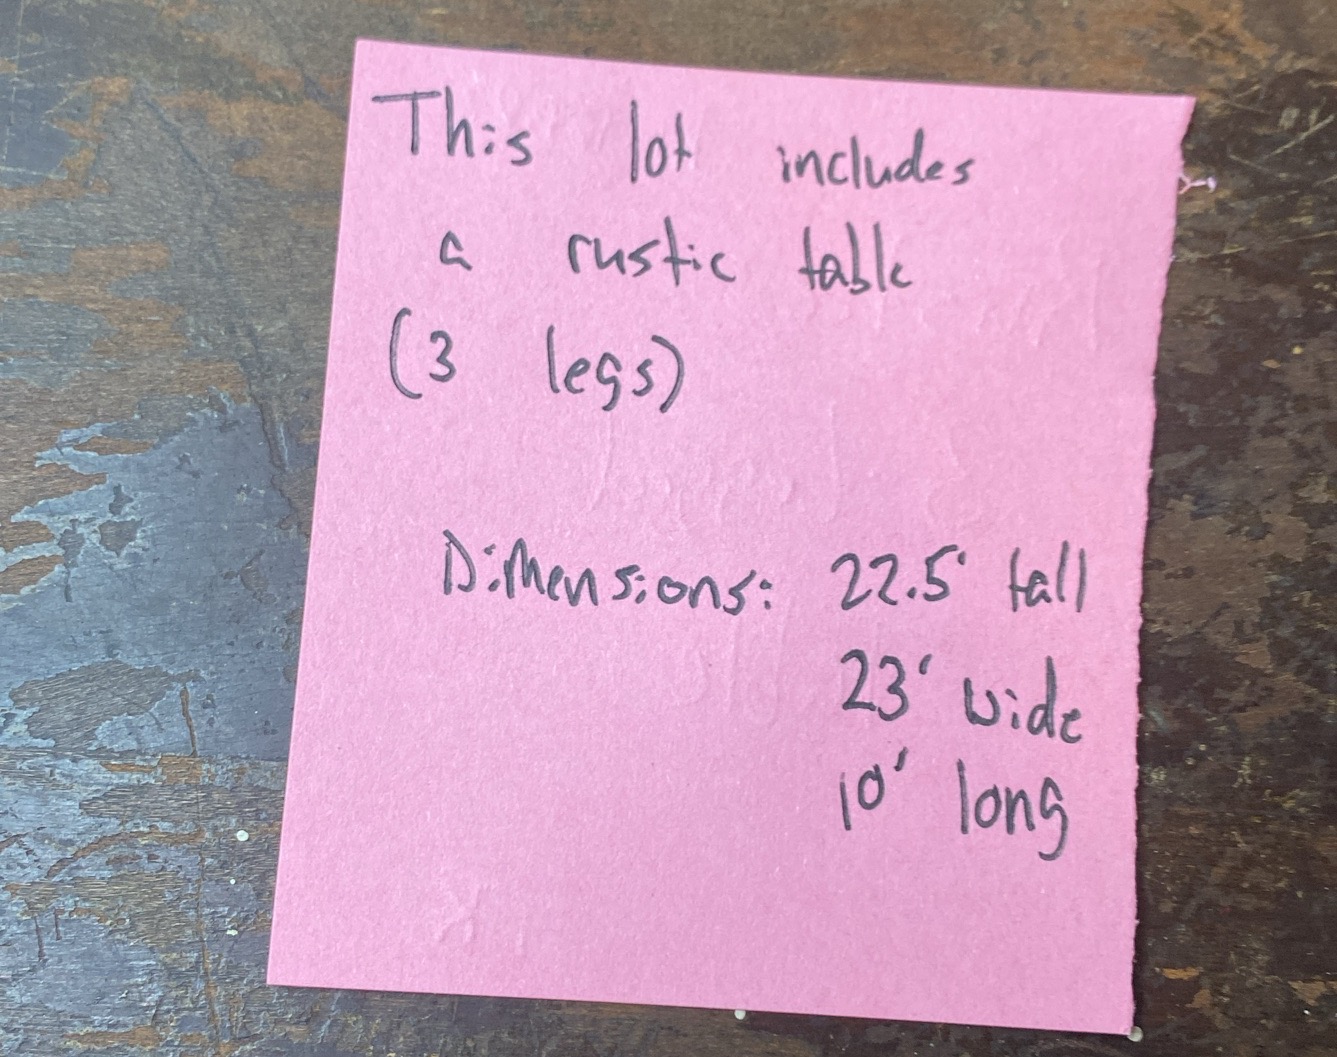 This lot includes
a rustic table
(3 legs)
Dimensions: 22.5' tall
23' wide
10' long